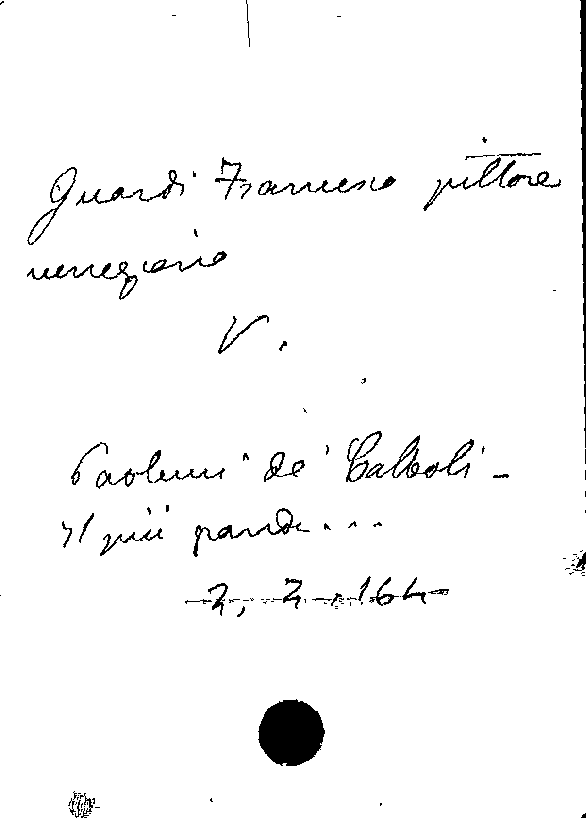 Guardi Francesco pittore
veneziano
V.
Paolucci de' Calboli -
Il più grande...
2, 2, 164